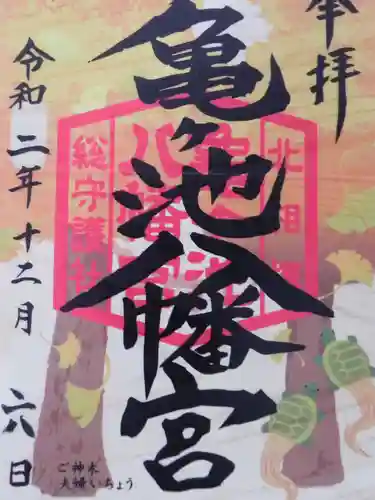 奉拝
亀ヶ池八幡宮
北相模
亀ヶ池
八幡宮
総守護
令和二年十二月六日
ご神木
夫婦いちょう